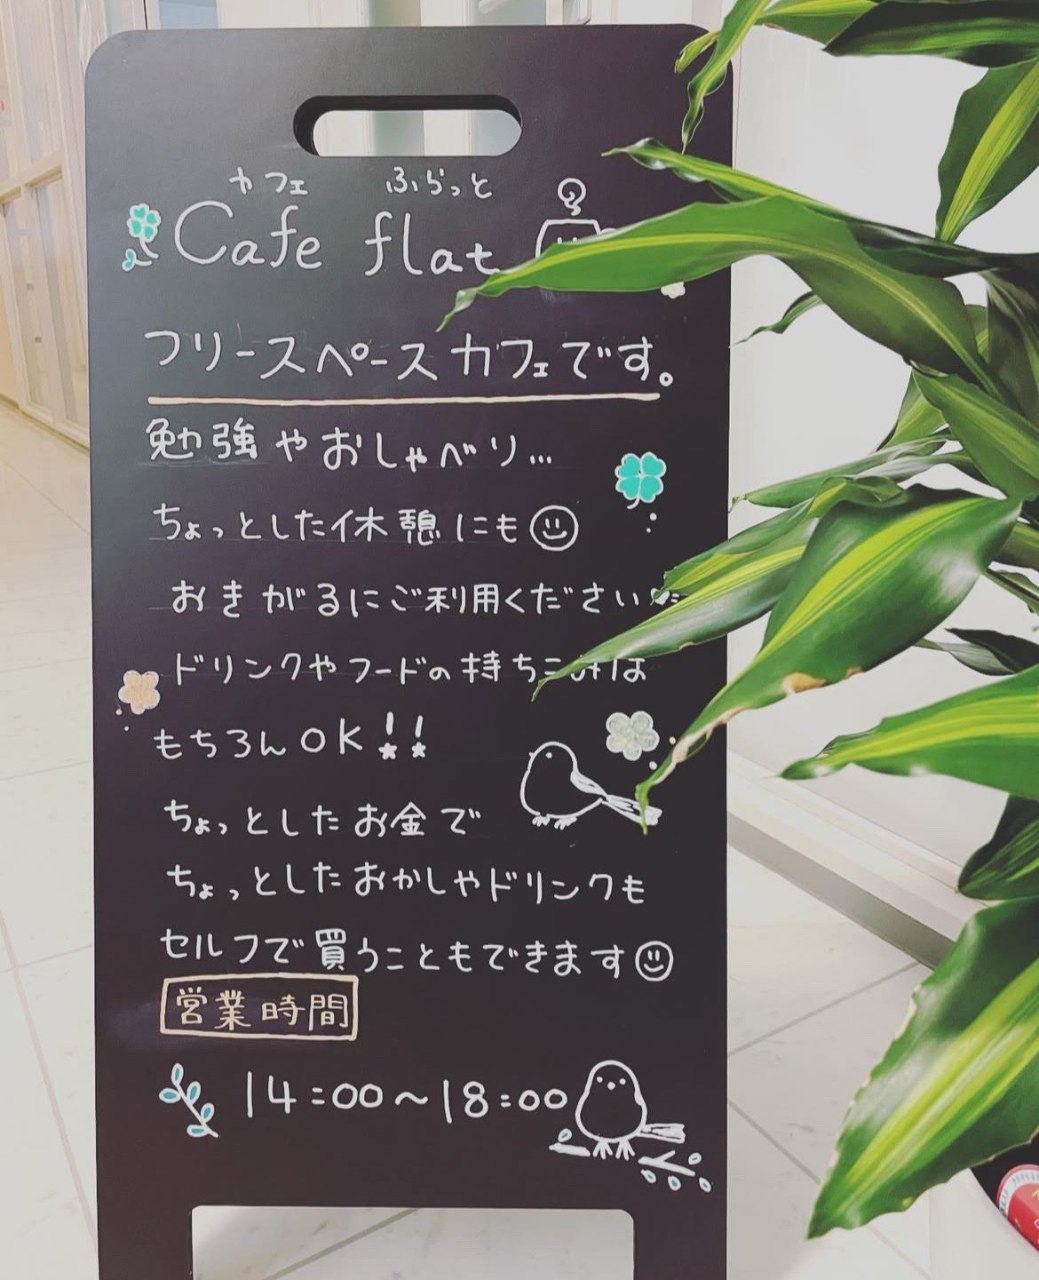 カフェ ふらっと
Cafe flat
フリースペースカフェです。
勉強やおしゃべり...
ちょっとした休憩にも
おきがるにご利用ください
ドリンクやフードの持ちこみは
もちろんOK!!
ちょっとしたお金で
ちょっとしたおかしやドリンクも
セルフで買うこともできます
営業時間
14:00~18:00